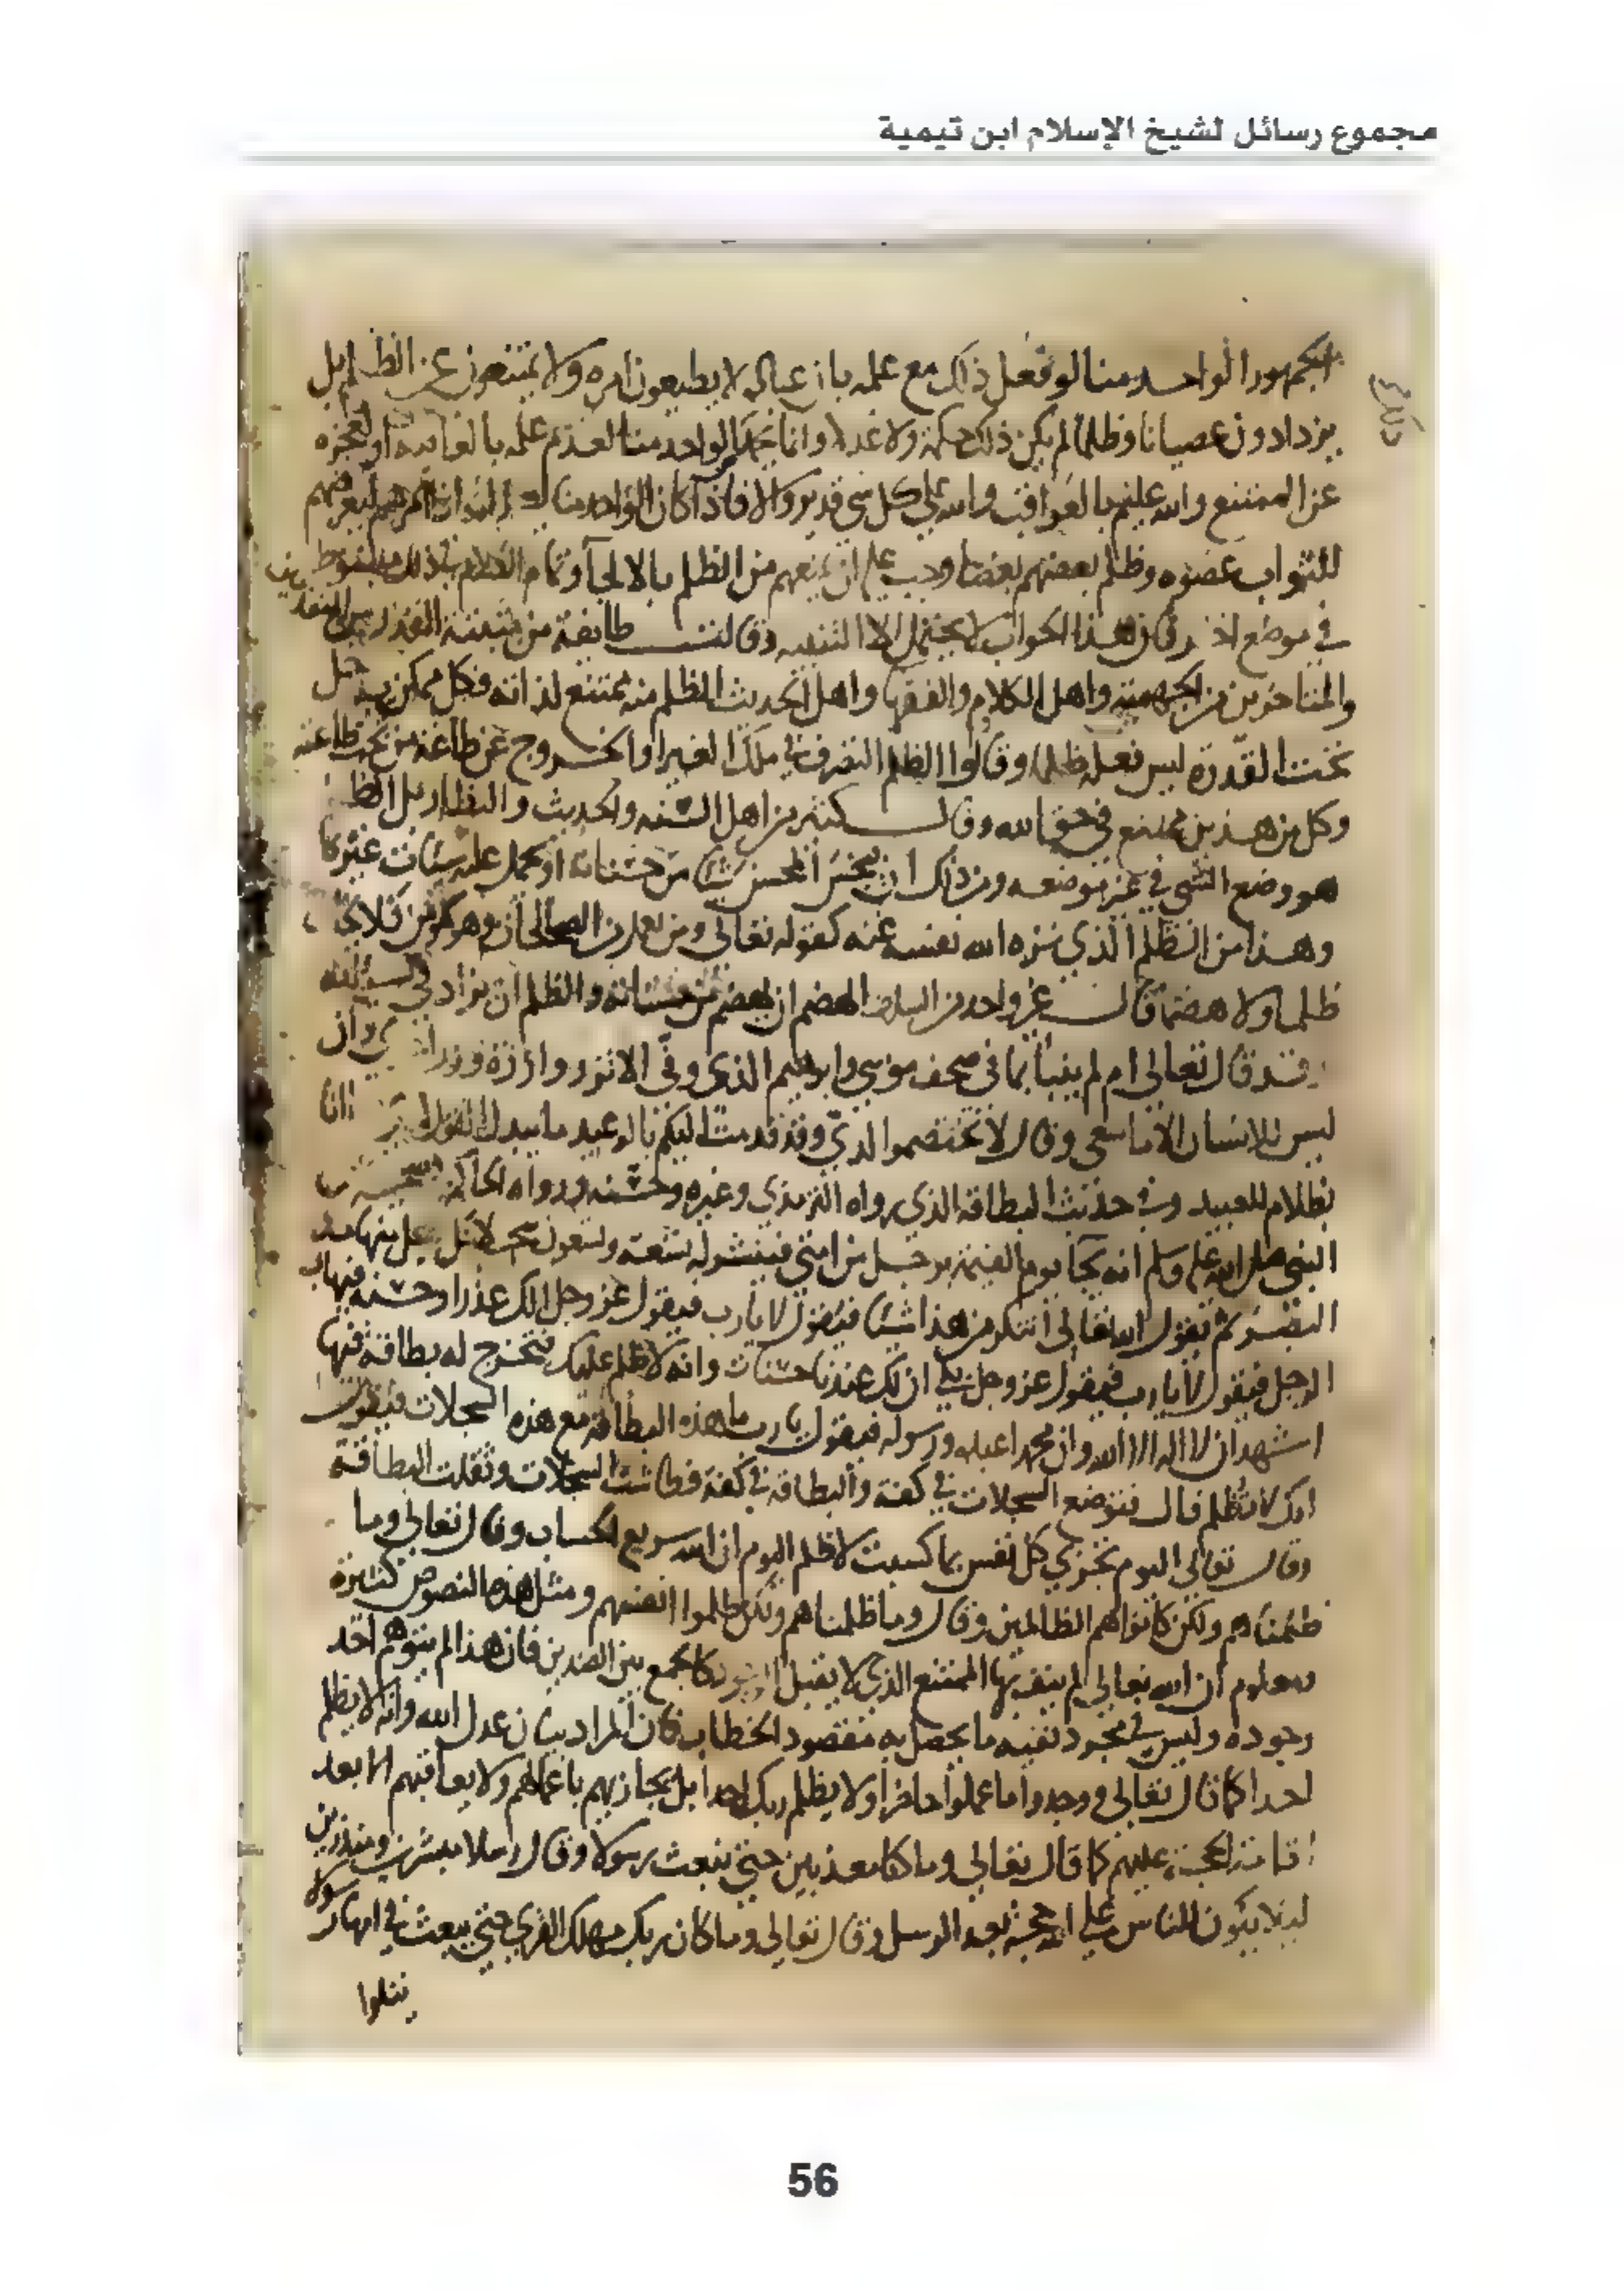 مجموع رسائل لشيخ الإسلام ابن تيمية
الجمهور الواحد منا لو فعل ذلك مع علمه بان عياله لا يطيعون امره ولا يمتنعون عن الظلم بل
يزدادون عصيانا وظلما لم يكن ذلك حكمة ولا عدلا وانما الواحد منا لعدم علمه بالعاقبة او لعجزه
عن الممتنع والله عليم بالعواقب والله على كل شي قدير والا فاذا كان الواحد منا
للثواب عصوه وظلم بعضهم بعضا وجب عليه ان يمنعهم من الظلم بالالجآ وتمام الكلام في ذلك مبسوط
في موضع اخر فان هذا الجواب لا يحتمل الا التنبيه وقالت طايفة من مثبتة القدر من المتقدمين
والمتاخرين من الجهمية واهل الكلام والفقها واهل الحديث الظلم منه ممتنع لذاته فكل ممكن يدخل
تحت القدرة ليس فعله ظلما وقالوا الظلم التصرف في ملك الغير او الخروج عن طاعة من تجب طاعته
وكل من هذين ممتنع في حق الله وقال كثير من اهل السنه والحديث والنظار بل الظلم
هو وضع الشي في غير موضعه ومن ذلك ان يبخس المحسن شيئا من حسناته او يحمل عليه سيئات غيره
وهذا من الظلم الذي نزه الله نفسه عنه كقوله تعالى ومن يعمل من الصالحات وهو مومن فلا يخاف
ظلما ولا هضما قال غير واحد من السلف الهضم ان يهضم من حسناته والظلم ان يزاد في سيئاته
وقد قال تعالى ام لم ينبأ بما في صحف موسى وابراهيم الذي وفى الا تزر وازرة وزر اخرى وان
ليس للانسان الا ما سعى وقال لا تختصموا لدي وقد قدمت اليكم بالوعيد ما يبدل القول لدي وما انا
بظلام للعبيد وفي حديث البطاقة الذي رواه الترمذي وغيره وحسنه ورواه الحاكم
النبي صلى الله عليه وسلم انه يجآ يوم القيمة برجل من امتي فينشر له تسعة وتسعون سجلا كل سجل منها مد
البصر ثم يقول الله تعالى اتنكر من هذا شيئا فيقول لا يا رب فيقول عز وجل الك عذر او حسنه فيهاب
الرجل فيقول لا يا رب فيقول عز وجل بلى ان لك عندنا حسنات وانه لا ظلم عليك فتخرج له بطاقة فيها
اشهد ان لا اله الا الله وان محمدا عبده ورسوله فيقول يا رب ما هذه البطاقة مع هذه السجلات فيقول
انك لا تظلم قال فتوضع السجلات في كفة والبطاقة في كفة فطاشت السجلات وثقلت البطاقة
وقال تعالى اليوم تجزى كل نفس بما كسبت لا ظلم اليوم ان الله سريع الحساب وقال تعالى وما
ظلمناهم ولكن كانوا هم الظالمين وقال وما ظلمناهم ولكن ظلموا انفسهم ومثل هذه النصوص كثيرة
ومعلوم ان الله تعالى لم ينف بها الممتنع الذي لا يقبل الوجود كالجمع بين الضدين فان هذا لم يتوهم احد
وجوده وليس في مجرد نفيه ما يحصل به مقصود الخطاب فان المراد بيان عدل الله وانه لا يظلم
احدا كما قال تعالى ووجدوا ما عملوا حاضرا ولا يظلم ربك احدا بل يجازيهم باعمالهم ولا يعاقبهم الا بعد
اقامة الحجة عليهم كما قال تعالى وما كنا معذبين حتى نبعث رسولا وقال رسلا مبشرين ومنذرين
ليلا يكون للناس على الله حجة بعد الرسل وقال تعالى وما كان ربك مهلك القرى حتى يبعث في امها رسولا
يتلوا
56